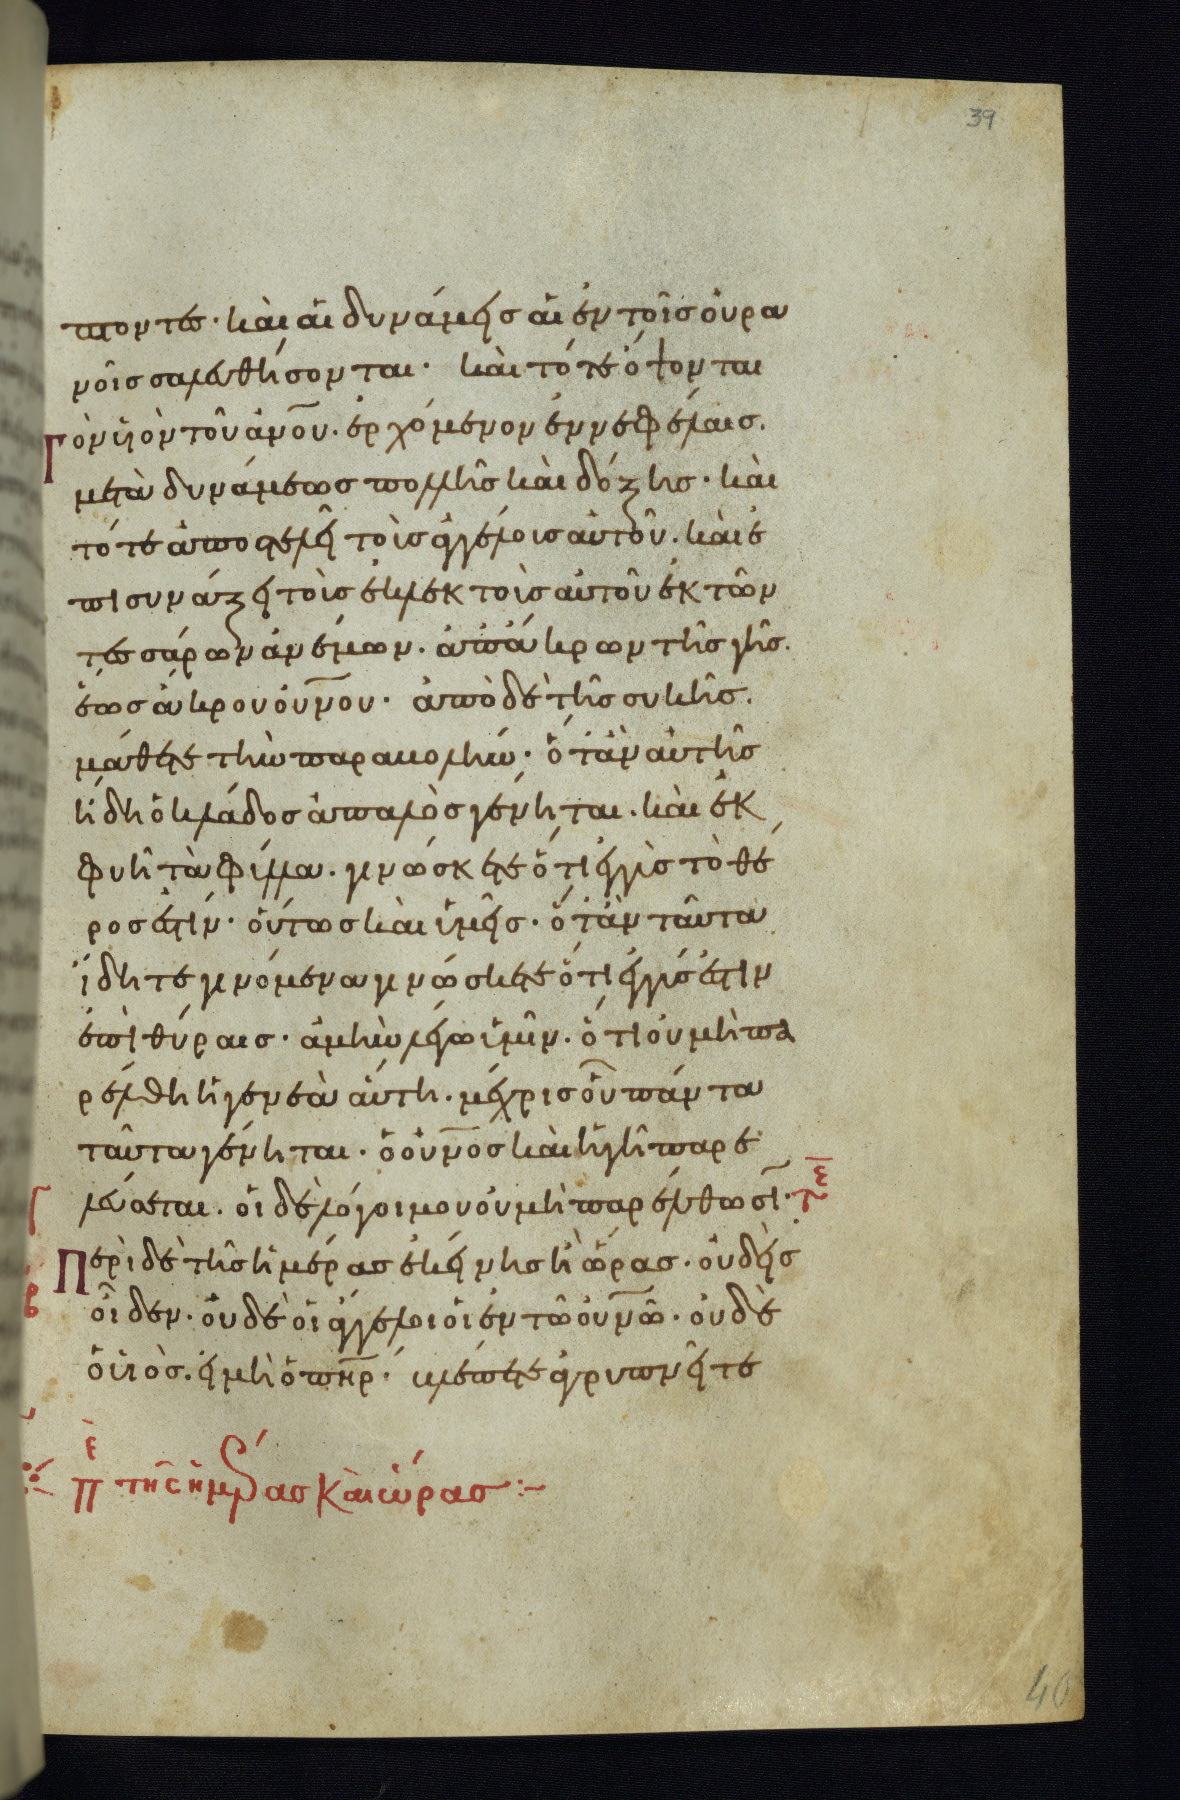 39
πτοντες· καὶ αἱ δυνάμεις αἱ ἐν τοῖς οὐρα
νοῖς σαλευθήσονται· καὶ τότε ὄψονται
Τὸν υἱὸν τοῦ ἀνου· ἐρχόμενον ἐν νεφέλαις.
μετὰ δυνάμεως πολλῆς καὶ δόξης· καὶ
τότε ἀποστελεῖ τοὺς ἀγγέλους αὐτοῦ. καὶ ἐ
πισυνάξει τοὺς ἐκλεκτοὺς αὐτοῦ ἐκ τῶν
τεσσάρων ἀνέμων. ἀπ' ἄκρων τῆς γῆς.
ἕως ἄκρου οὐνου· ἀπὸ δὲ τῆς συκῆς.
μάθετε τὴν παραβολήν· ὅταν αὐτῆς
ἤδη ὁ κλάδος ἁπαλὸς γένηται. καὶ ἐκ
φυῆ τὰ φύλλα. γινώσκετε ὅτι ἐγγὺς τὸ θέ
ρος ἐστίν· οὕτως καὶ ὑμεῖς· ὅταν ταῦτα
ἴδητε γινόμενα γινώσκετε ὅτι ἐγγύς ἐστιν
ἐπὶ θύραις· ἀμὴν λέγω ὑμῖν. ὅτι οὐ μὴ πα
ρέλθη ἡ γενεὰ αὕτη. μέχρις οὗ πάντα
ταῦτα γένηται· ὁ οὐνος καὶ ἡ γῆ παρε
λεύσεται. οἱ δὲ λόγοι μου οὐ μὴ παρέλθωσι· τε
Περὶ δὲ τῆς ἡμέρας ἐκείνης ἢ ὥρας· οὐδεὶς
οἶδεν· οὐδὲ οἱ ἄγγελοι οἱ ἐν τῶ οὐνω· οὐδὲ
ὁ υἱός. εἰ μὴ ὁ πηρ· βλέπετε ἀγρυπνεῖτε
πε τῆς ἡμέρας καὶ ὥρας :-
40